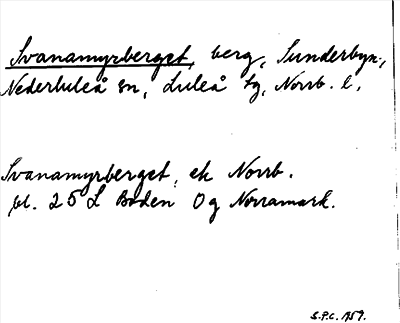 Svanamyrberget, berg, Sunderbyn,
Nederluleå sn, Luleå tg, Norrb. l.
Svanamyrberget, ek Norrb.
bl. 25 L Boden Og Norramark.
S.P.C. 1959.